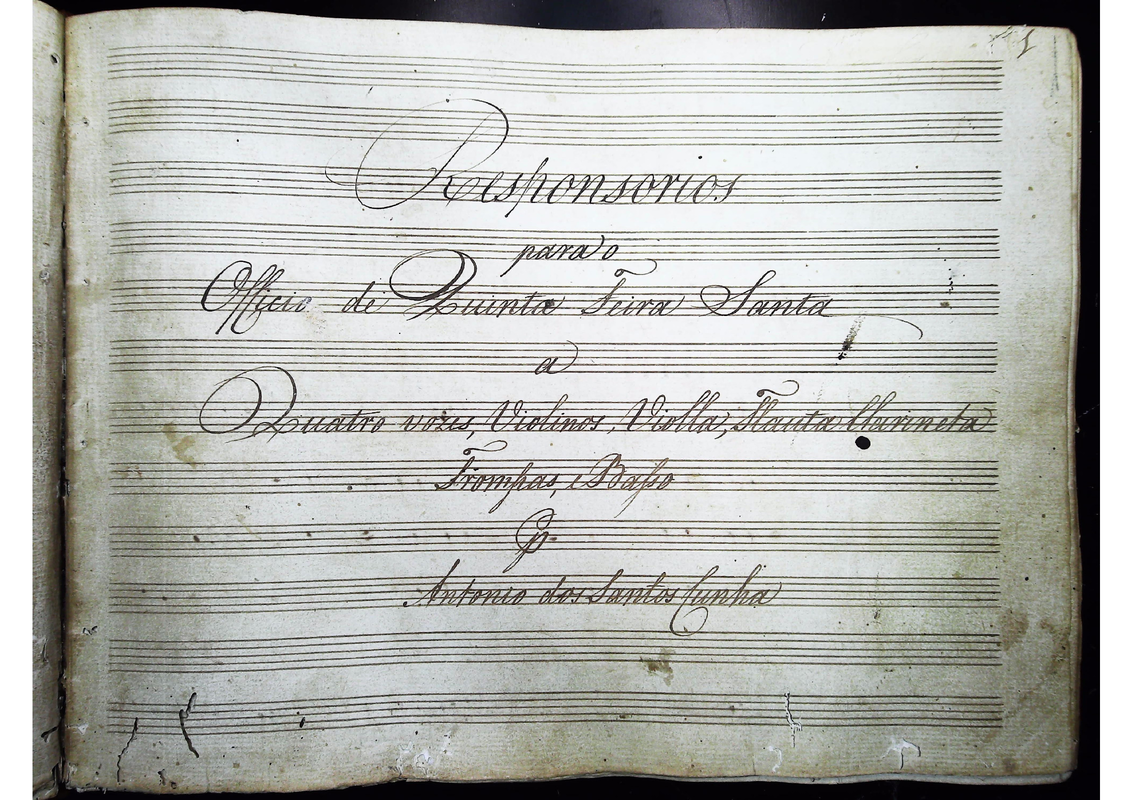 1
Responsorios
para o
Officio de Quinta Feira Santa
a
Quatro vozes, Violinos, Violla, Flauta Clarineta
Trompas, e Baſso
P.
Antonio dos Santos Cunha